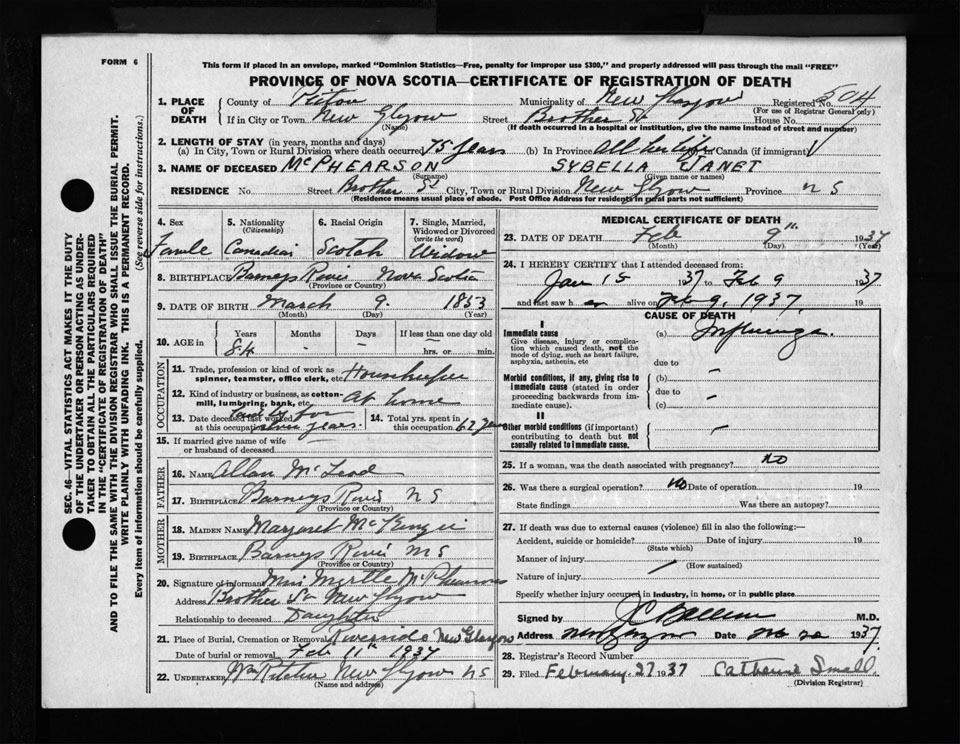 FORM 6
This form if placed in an envelope, marked "Dominion Statistics—Free, penalty for improper use $300," and properly addressed will pass through the mail "FREE"
PROVINCE OF NOVA SCOTIA—CERTIFICATE OF REGISTRATION OF DEATH
1. PLACE OF DEATH County of Pictou Municipality of New Glasgow Registered No. 504
(For use of Registrar General only)
If in City or Town New Glasgow Street Brother St House No.
(Name) (If death occurred in a hospital or institution, give the name instead of street and number)
2. LENGTH OF STAY (in years, months and days)
(a) In City, Town or Rural Division where death occurred 75 years (b) In Province All her life Canada (if immigrant)
3. NAME OF DECEASED McPHEARSON SYBELLA JANET
(Surname) (Given name or names)
RESIDENCE No. Street Brother St City, Town or Rural Division New Glgow Province N S
(Residence means usual place of abode. Post Office Address for residents in rural parts not sufficient)
4. Sex 5. Nationality (Citizenship) 6. Racial Origin 7. Single, Married, Widowed or Divorced (write the word)
Famle Canadian Scotch Widow
8. BIRTHPLACE Barneys River Nova Scotia
(Province or Country)
9. DATE OF BIRTH March 9. 1853
(Month) (Day) (Year)
10. AGE in Years Months Days If less than one day old
84 – – hrs. or min.
OCCUPATION
11. Trade, profession or kind of work as spinner, teamster, office clerk, etc. Housekeeper
12. Kind of industry or business, as cotton-mill, lumbering, bank, etc. At home
13. Date deceased last worked at this occupation years. 14. Total yrs. spent in this occupation 62 years
15. If married give name of wife or husband of deceased –
FATHER
16. NAME Allan McLeod
17. BIRTHPLACE Barneys River N S
(Province or Country)
MOTHER
18. MAIDEN NAME Margaret McKenzie
19. BIRTHPLACE Barneys River N S
(Province or Country)
20. Signature of informant Myrtle McPhearson
Address Brother St New Glgow
Relationship to deceased Daughter
21. Place of Burial, Cremation or Removal Riverside New Glasgow
Date of burial or removal Feb 11th 1937
22. UNDERTAKER New Glgow NS
(Name and address)
MEDICAL CERTIFICATE OF DEATH
23. DATE OF DEATH Feb 9th 1937
(Month) (Day) (Year)
24. I HEREBY CERTIFY that I attended deceased from:
Jan 15 1937 to Feb 9 1937
and last saw h er alive on Feb 9, 1937
CAUSE OF DEATH
I
Immediate cause (a) Influenza.
Give disease, injury or complication which caused death, not the mode of dying, such as heart failure, asphyxia, asthenia, etc
due to
Morbid conditions, if any, giving rise to immediate cause (stated in order proceeding backwards from immediate cause).
(b) –
due to
(c) –
II
Other morbid conditions (if important) contributing to death but not causally related to immediate cause.
–
25. If a woman, was the death associated with pregnancy? No
26. Was there a surgical operation? No Date of operation 19
State findings Was there an autopsy?
27. If death was due to external causes (violence) fill in also the following:—
Accident, suicide or homicide? Date of injury 19
(State which)
Manner of injury
(How sustained)
Nature of injury –
Specify whether injury occurred in industry, in home, or in public place
Signed by M.D.
Address New Glasgow Date 1937.
28. Registrar's Record Number
29. Filed February. 27. 1937 Catherine Small.
(Division Registrar)
SEC. 46—VITAL STATISTICS ACT MAKES IT THE DUTY
OF THE UNDERTAKER OR PERSON ACTING AS UNDERTAKER TO OBTAIN ALL THE PARTICULARS REQUIRED
IN THE "CERTIFICATE OF REGISTRATION OF DEATH"
AND TO FILE THE SAME WITH THE DIVISION REGISTRAR WHO SHALL ISSUE THE BURIAL PERMIT.
WRITE PLAINLY WITH UNFADING INK. THIS IS A PERMANENT RECORD.
Every item of information should be carefully supplied. (See reverse side for instructions.)